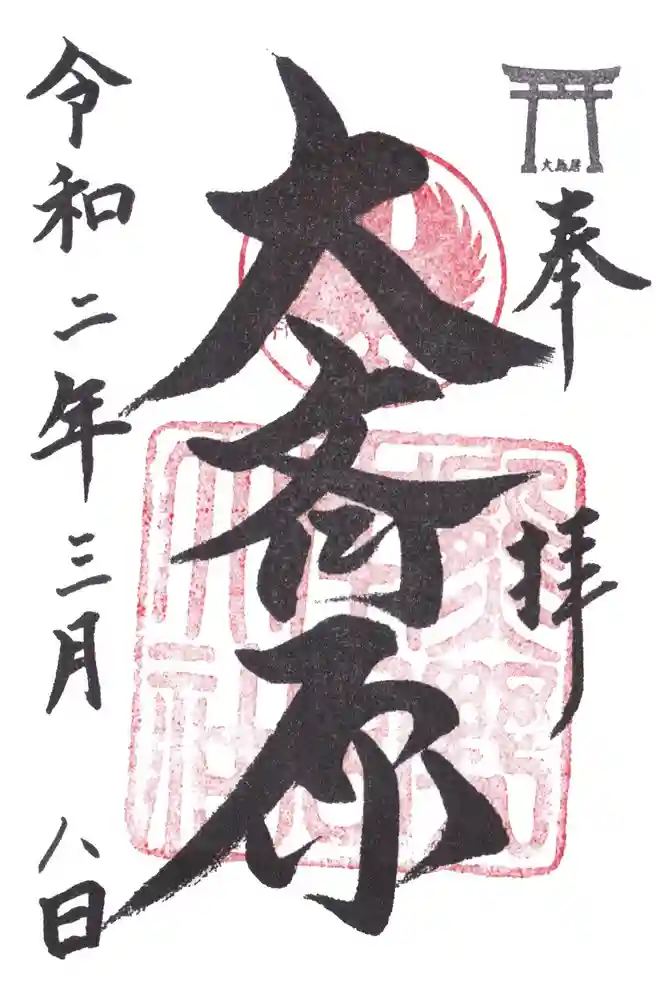 大鳥居
奉拝
大斎原
令和二年三月八日